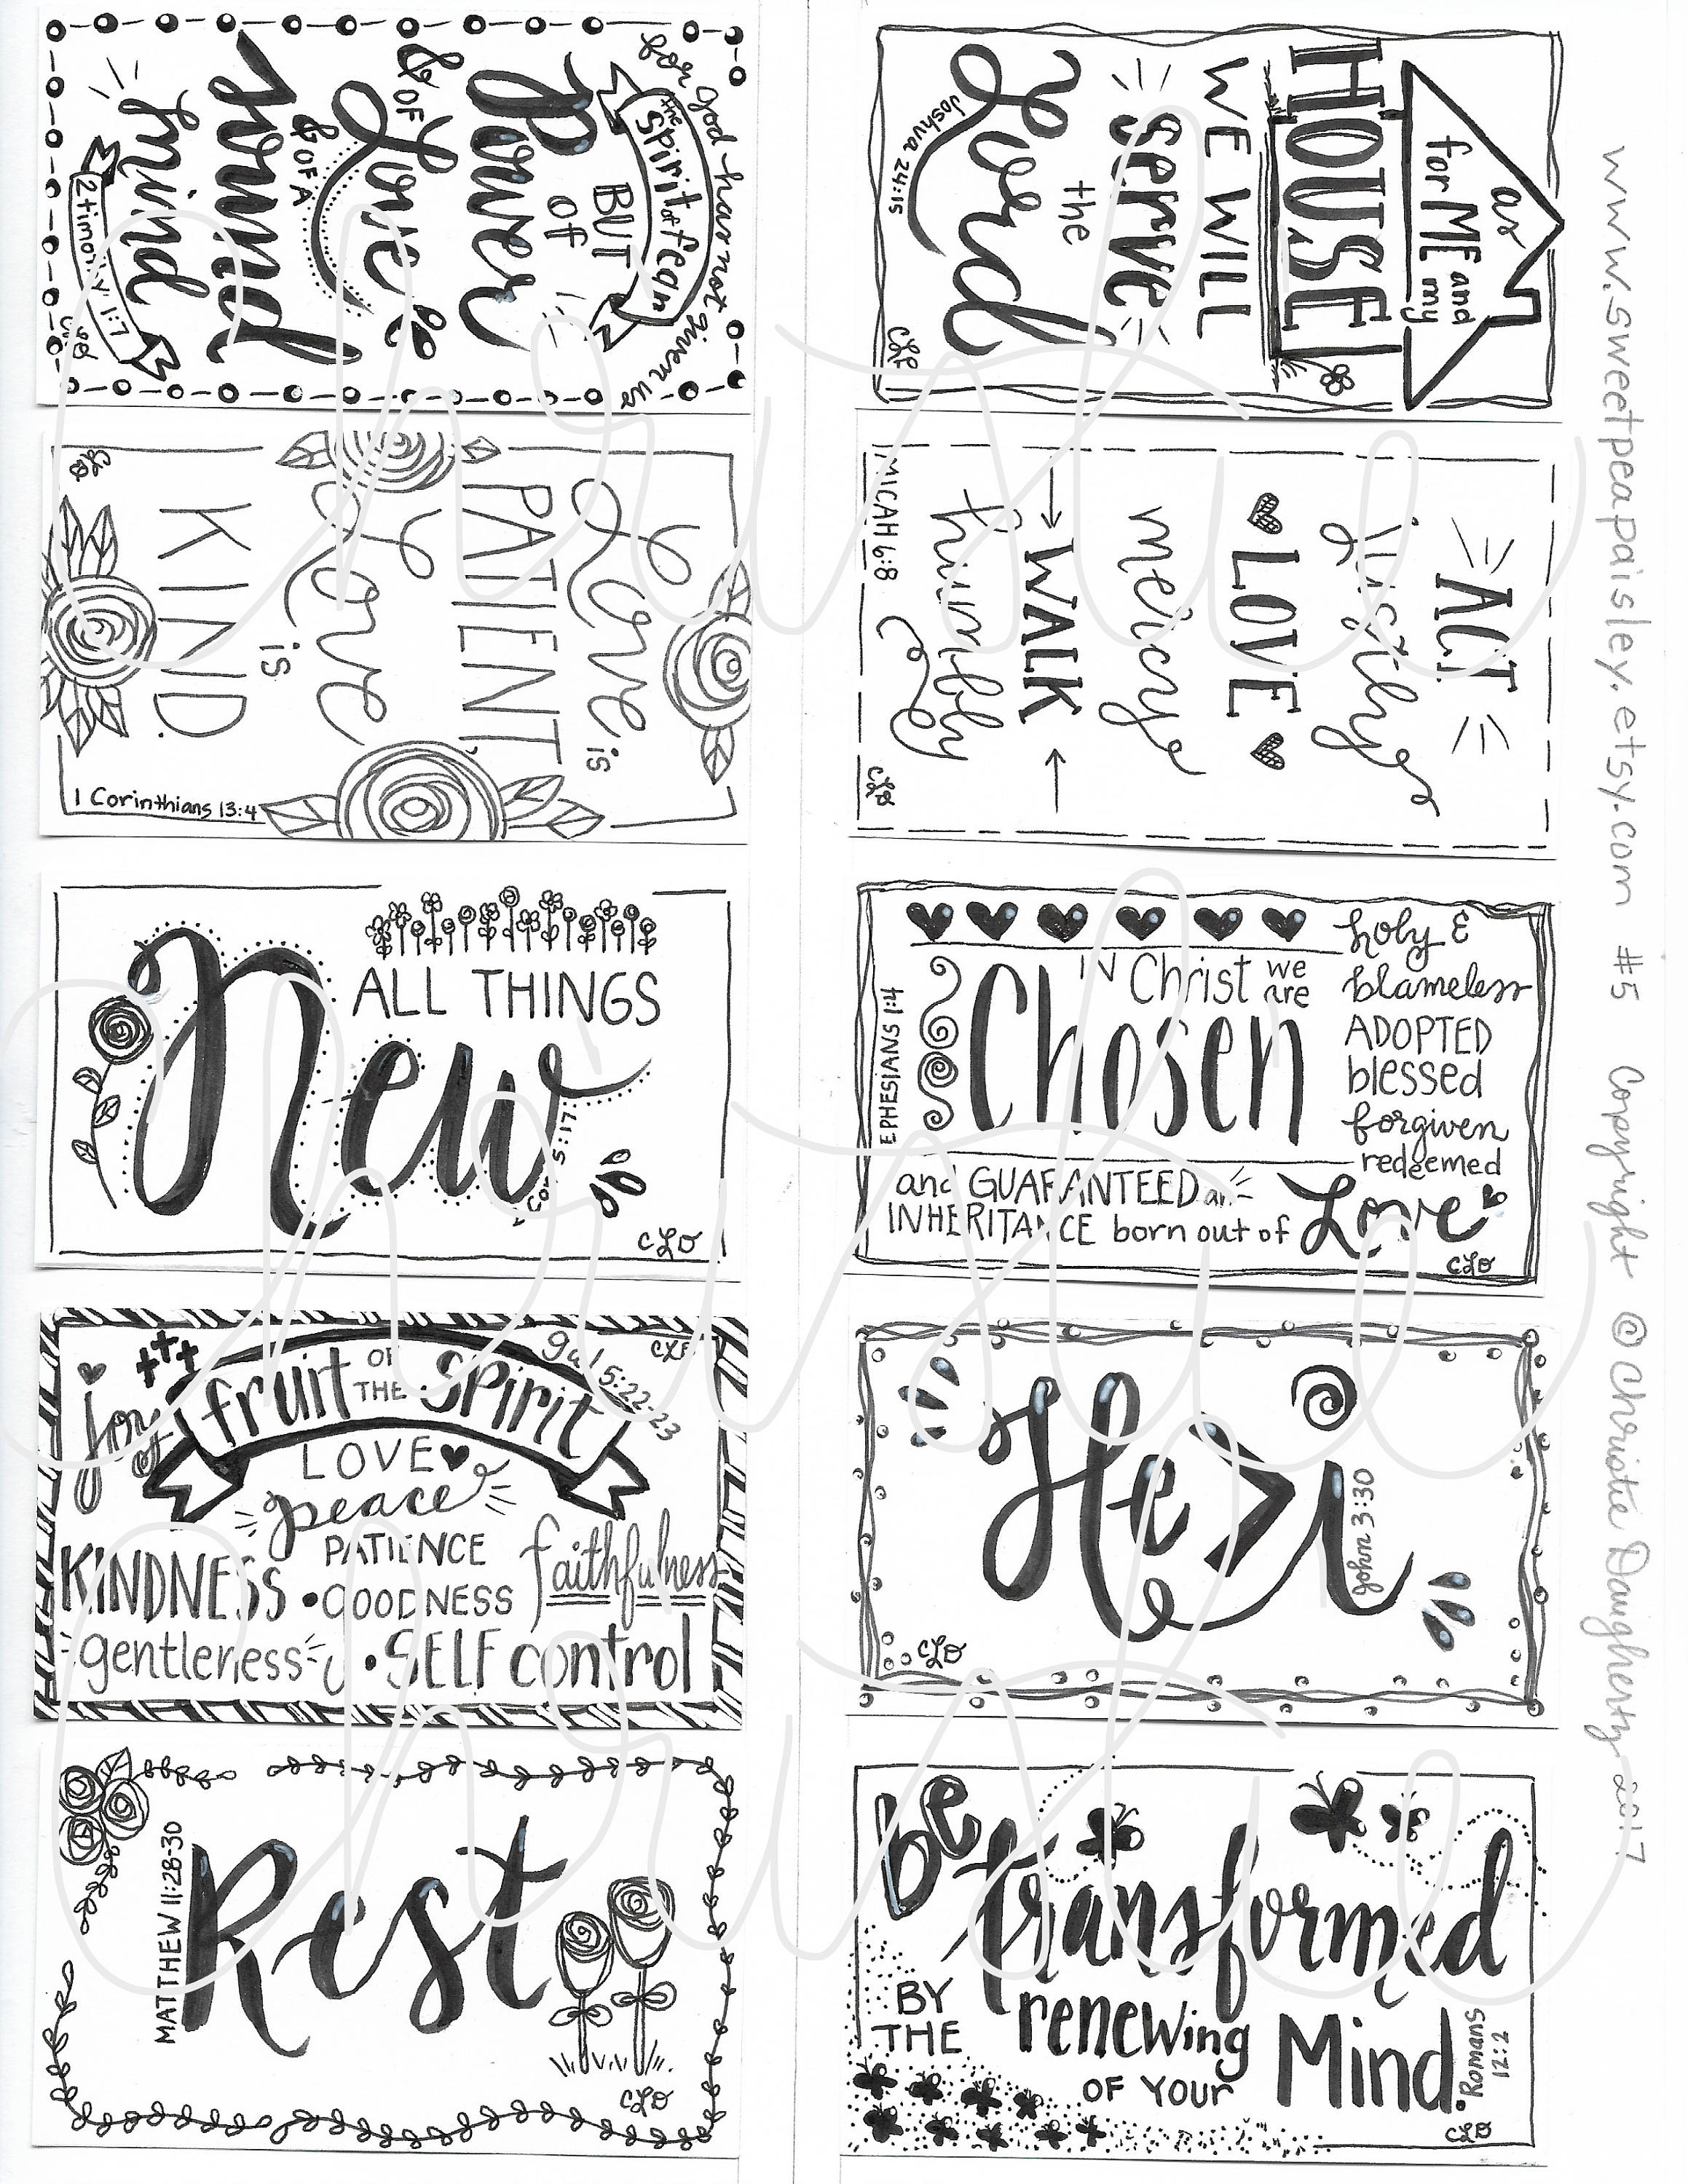 for God has not given us
the Spirit of fear
BUT
of
Power
& OF
Love
& OF A
sound
mind
2 Timothy 1:7
CLD
as
for ME and my
HOUSE
WE WILL
serve
the
Lord
Joshua 24:15
CLD
Love is
PATIENT,
Love
is
KIND.
1 Corinthians 13:4
CLD
ACT
justly
LOVE
mercy
WALK
humbly
MICAH 6:8
CLD
ALL THINGS
New
2 Cor 5:17
CLD
holy &
blameless
ADOPTED
blessed
forgiven
redeemed
IN Christ we are
Chosen
EPHESIANS 1:4
and GUARANTEED an
INHERITANCE born out of Love
CLD
fruit OF THE Spirit
Gal 5:22-23
CLD
joy
LOVE
peace
PATIENCE
KINDNESS • GOODNESS faithfulness
gentleness • SELF control
He > i
John 3:30
CLD
MATTHEW 11:28-30
Rest
CLD
be
transformed
BY THE
renewing
OF YOUR
Mind.
Romans 12:2
CLD
www.sweetpeapaisley.etsy.com #5 Copyright © Christie Daugherty 2017
Christie
Christie
Christie
Christie